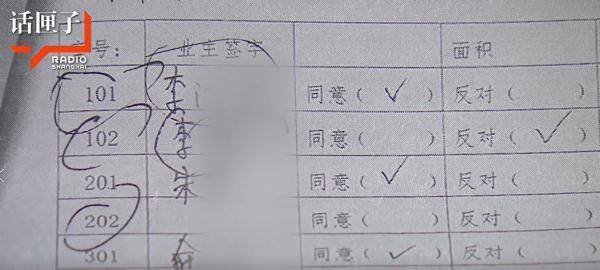 话匣子
RADIO
SHANGHAI
号: 业主签字 面积
101 同意( ✓ ) 反对( )
102 李 同意( ) 反对( ✓ )
201 朱 同意( ✓ ) 反对( )
202 同意( ) 反对( )
301 同意( ✓ ) 反对( )